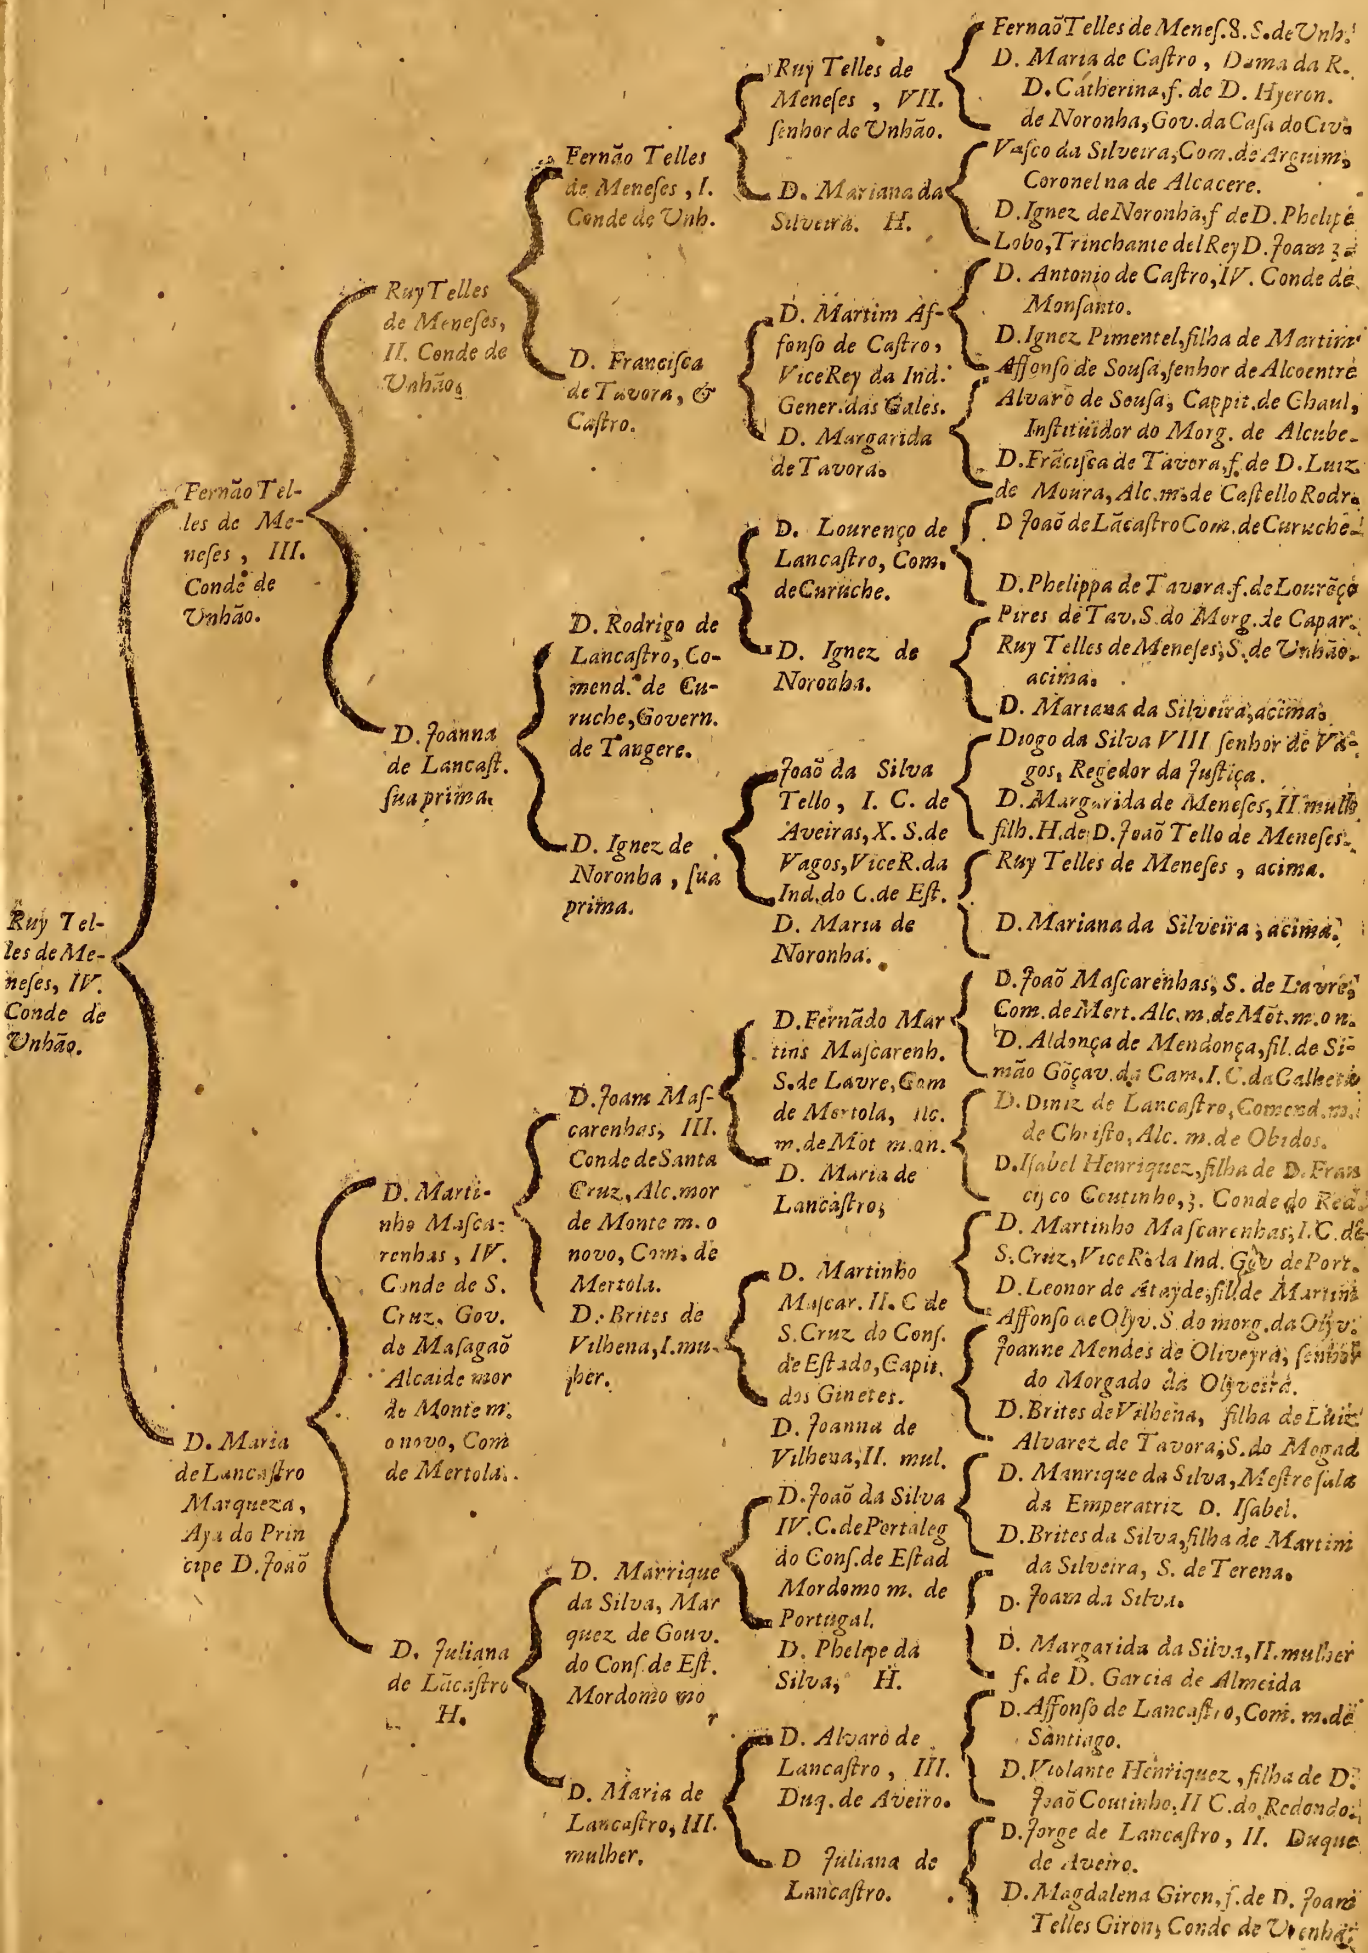 Ruy Tel-
les de Me-
neſes, IV.
Conde de
Unhão.
Fernão Tel-
les de Me-
neſes, III.
Conde de
Unhão.
D. Maria
de Lancaſtro
Marqueza,
Aya do Prin
cipe D. Joaõ
Ruy Telles
de Meneſes,
II. Conde de
Unhão.
D. Joanna
de Lancaſt.
ſua prima.
D. Marti-
nho Maſca-
renhas, IV.
Conde de S.
Cruz. Gov.
de Maſagaõ
Alcaide mor
de Monte m.
o novo, Com
de Mertola.
D. Juliana
de Lãcaſtro
H.
Fernão Telles
de Meneſes, I.
Conde de Unh.
D. Franciſca
de Tavora, &
Caſtro.
D. Rodrigo de
Lancaſtro, Co-
mend. de Cu-
ruche, Govern.
de Tangere.
D. Ignez de
Noronha, ſua
prima.
D. Joam Maſ-
carenhas, III.
Conde de Santa
Cruz, Alc. mor
de Monte m. o
novo, Com. de
Mertola.
D. Brites de
Vilhena, I. mu-
her.
D. Marrique
da Silva, Mar
quez de Gouv.
do Conſ. de Eſt.
Mordomo mo
r
D. Maria de
Lancaſtro, III.
mulher.
Ruy Telles de
Meneſes, VII.
ſenhor de Unhão.
D. Mariana da
Silveira. H.
D. Martim Af-
fonſo de Caſtro,
ViceRey da Ind.
Gener. das Gales.
D. Margarida
de Tavora.
D. Lourenço de
Lancaſtro, Com.
de Curuche.
D. Ignez de
Noronha.
Joaõ da Silva
Tello, I. C. de
Aveiras, X. S. de
Vagos, ViceR. da
Ind. do C. de Eſt.
D. Maria de
Noronha.
D. Fernãdo Mar
tins Maſcarenh.
S. de Lavre, Com
de Mertola, Alc.
m. de Mõt m. on.
D. Maria de
Lancaſtro,
D. Martinho
Maſcar. II. C de
S. Cruz do Conſ.
de Eſtado, Capit.
dos Ginetes.
D. Joanna de
Vilhena, II. mul.
D. Joaõ da Silva
IV. C. de Portaleg
do Conſ. de Eſtad
Mordomo m. de
Portugal.
D. Phelipe da
Silva, H.
D. Alvaro de
Lancaſtro, III.
Duq. de Aveiro.
D Juliana de
Lancaſtro.
Fernaõ Telles de Meneſ. 8. S. de Unh.
D. Maria de Caſtro, Dama da R.
D. Catherina, f. de D. Hyeron.
de Noronha, Gov. da Caſa do Civ.
Vaſco da Silveira, Com. de Arguim,
Coronel na de Alcacere.
D. Ignez de Noronha, f de D. Phelipe
Lobo, Trinchante del Rey D. Joam 3.
D. Antonio de Caſtro, IV. Conde de
Monſanto.
D. Ignez Pimentel, filha de Martim
Affonſo de Souſa, ſenhor de Alcoentre
Alvaro de Souſa, Cappit. de Chaul,
Inſtituidor do Morg. de Alcube.
D. Frãciſca de Tavora, f. de D. Luiz
de Moura, Alc. m. de Caſtello Rodr.
D Joaõ de Lãcaſtro Com. de Curuche.
D. Phelippa de Tavora. f. de Lourẽço
Pires de Tav. S. do Morg. de Capar.
Ruy Telles de Meneſes, S. de Unhão,
acima.
D. Mariana da Silveira, acima.
Diogo da Silva VIII ſenhor de Va-
gos, Regedor da Juſtiça.
D. Margarida de Meneſes, II mulh
filh. H. de D. Joaõ Tello de Meneſes.
Ruy Telles de Meneſes, acima.
D. Mariana da Silveira, acima.
D. Joaõ Maſcarenhas, S. de Lavre,
Com. de Mert. Alc. m. de Mõt. m. o n.
D. Aldonça de Mendonça, fil. de Si-
mão Gõçav. da Cam. I. C. da Calheta
D. Diniz de Lancaſtro, Comend. m.
de Chriſto, Alc. m. de Obidos.
D. Iſabel Henriquez, filha de D. Fran
ciſco Coutinho, 3. Conde do Red.
D. Martinho Maſcarenhas, I. C. de
S. Cruz, ViceR. da Ind. Gov de Port.
D. Leonor de Atayde, fil. de Martim
Affonſo de Olyv. S. do morg. da Olyv.
Joanne Mendes de Oliveyra, ſenhor
do Morgado da Olyveira.
D. Brites de Vilhena, filha de Luiz
Alvarez de Tavora, S. do Mogad
D. Manrique da Silva, Meſtreſala
da Emperatriz D. Iſabel.
D. Brites da Silva, filha de Martim
da Silveira, S. de Terena.
D. Joam da Silva.
D. Margarida da Silva, II. mulher
f. de D. Garcia de Almeida
D. Affonſo de Lancaſtro, Com. m. de
Santiago.
D. Violante Henriquez, filha de D.
Joaõ Coutinho, II C. do Redondo.
D. Jorge de Lancaſtro, II. Duque
de Aveiro.
D. Magdalena Giron, f. de D. Joam
Telles Giron, Conde de Urenha.